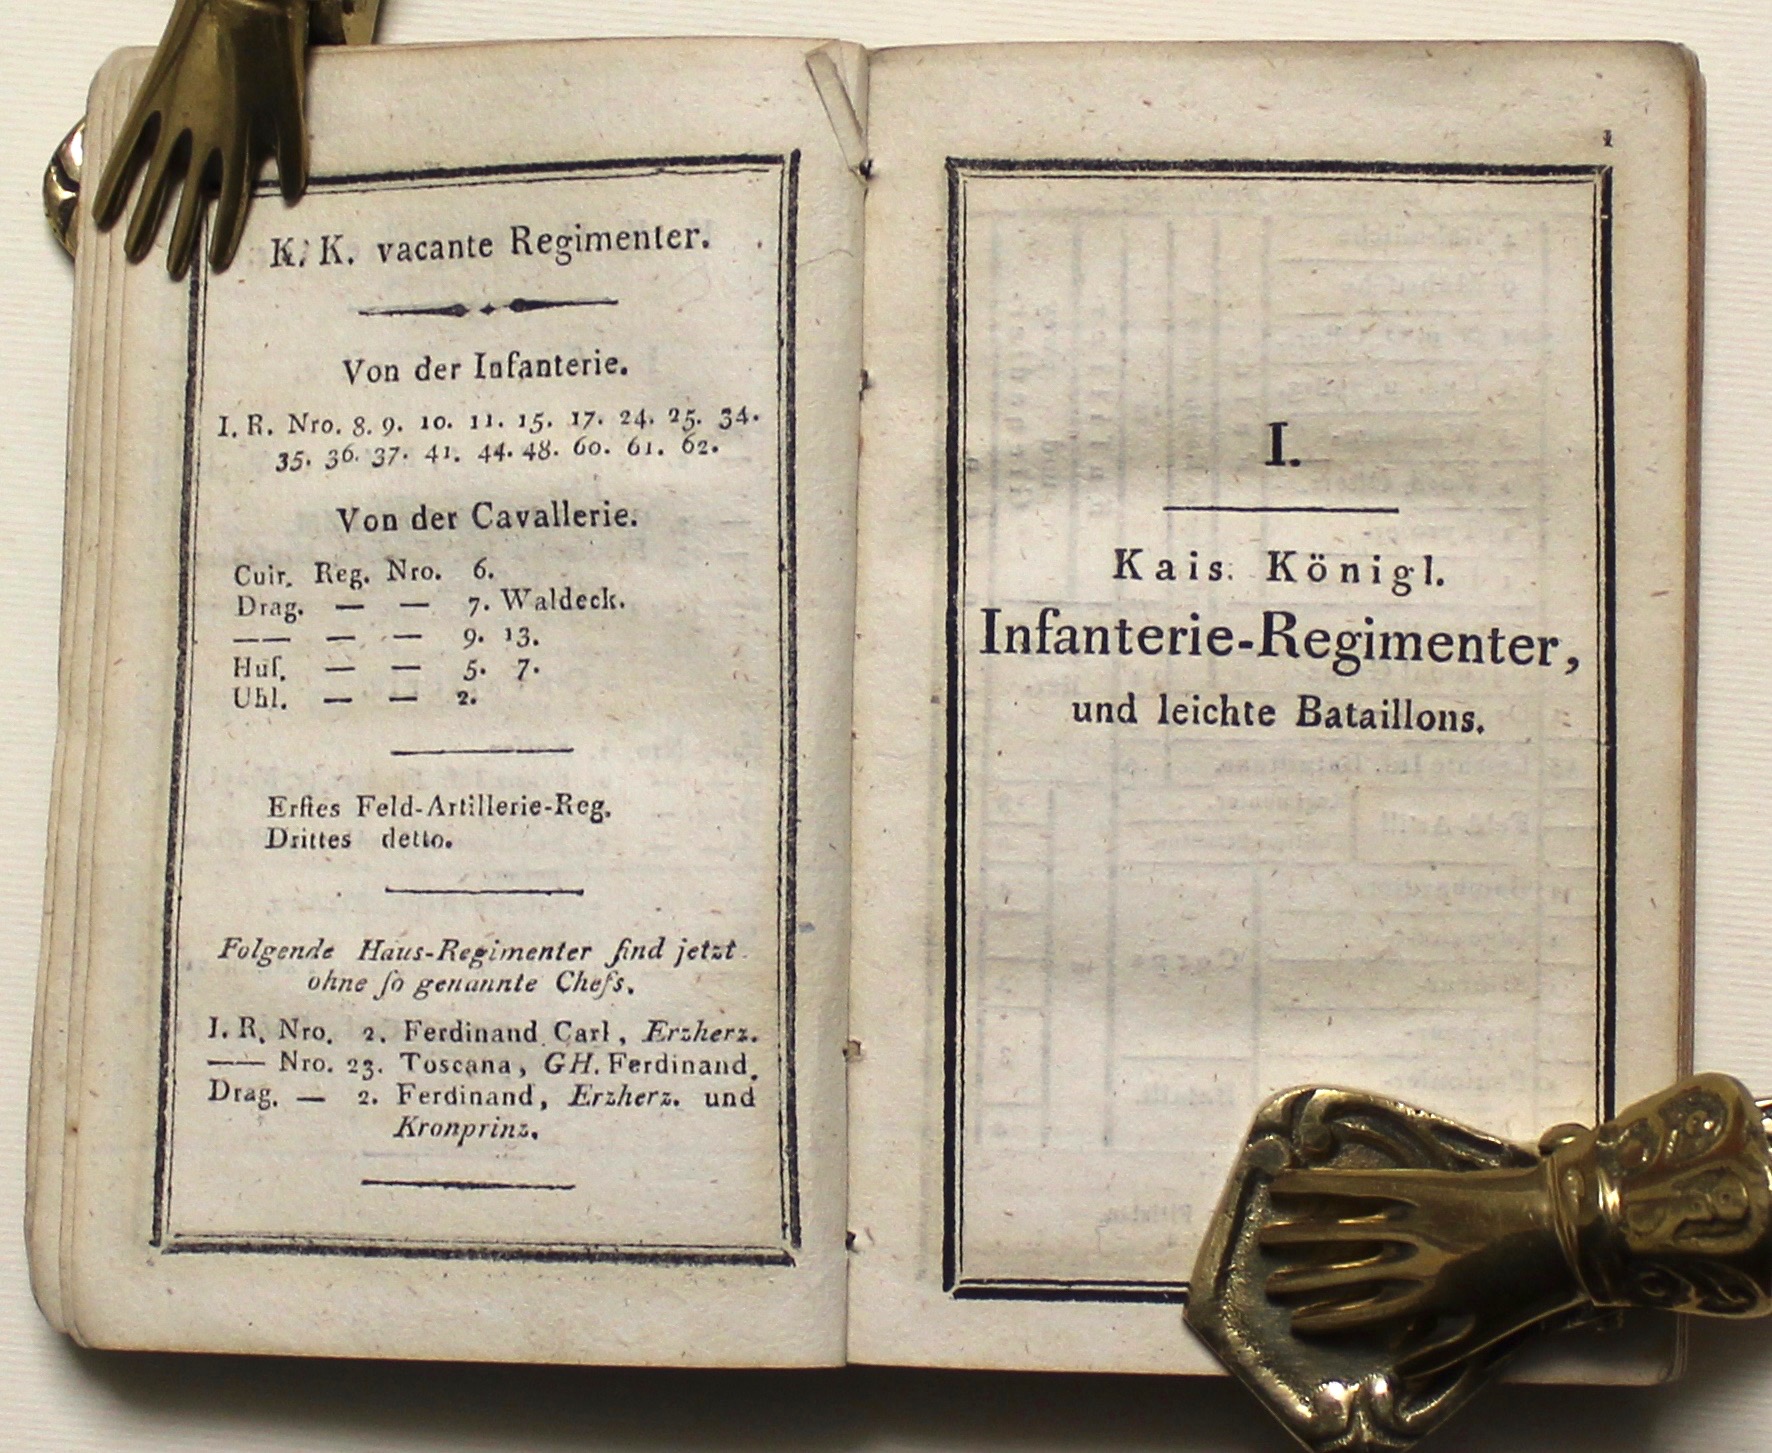 K. K. vacante Regimenter.
Von der Infanterie.
I. R. Nro. 8. 9. 10. 11. 15. 17. 24. 25. 34.
35. 36. 37. 41. 44. 48. 60. 61. 62.
Von der Cavallerie.
Cuir. Reg. Nro. 6.
Drag. — — 7. Waldeck.
—— — — 9. 13.
Huſ. — — 5. 7.
Uhl. — — 2.
Erſtes Feld-Artillerie-Reg.
Drittes detto.
Folgende Haus-Regimenter ſind jetzt
ohne ſo genannte Chefs.
I. R. Nro. 2. Ferdinand Carl, Erzherz.
—— Nro. 23. Toscana, GH. Ferdinand.
Drag. — 2. Ferdinand, Erzherz. und
Kronprinz.
1
I.
Kais. Königl.
Infanterie-Regimenter,
und leichte Bataillons.